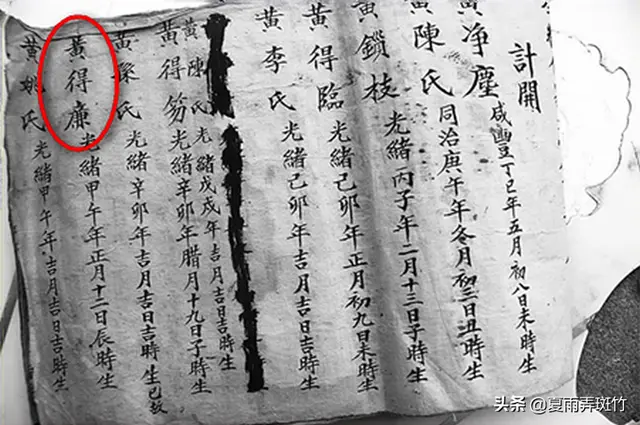 計開
黃净塵咸豐丁巳年五月初八日未時生
黃陳氏同治庚午年冬月初三日丑時生
黃鎖枝光緒丙子年二月十三日子時生
黃得臨光緒己卯年正月初九日未時生
黃李氏光緒己卯年吉月吉日吉時生
黃陳氏光緒戊戌年吉月吉日吉時生
黃得笏光緒辛卯年腊月十九日子時生
黃梁氏光緒辛卯年吉月吉日吉時生已故
黃得廉光緒甲午年正月十二日辰時生
黃姚氏光緒甲午年吉月吉日吉時生
头条 @夏雨弄斑竹